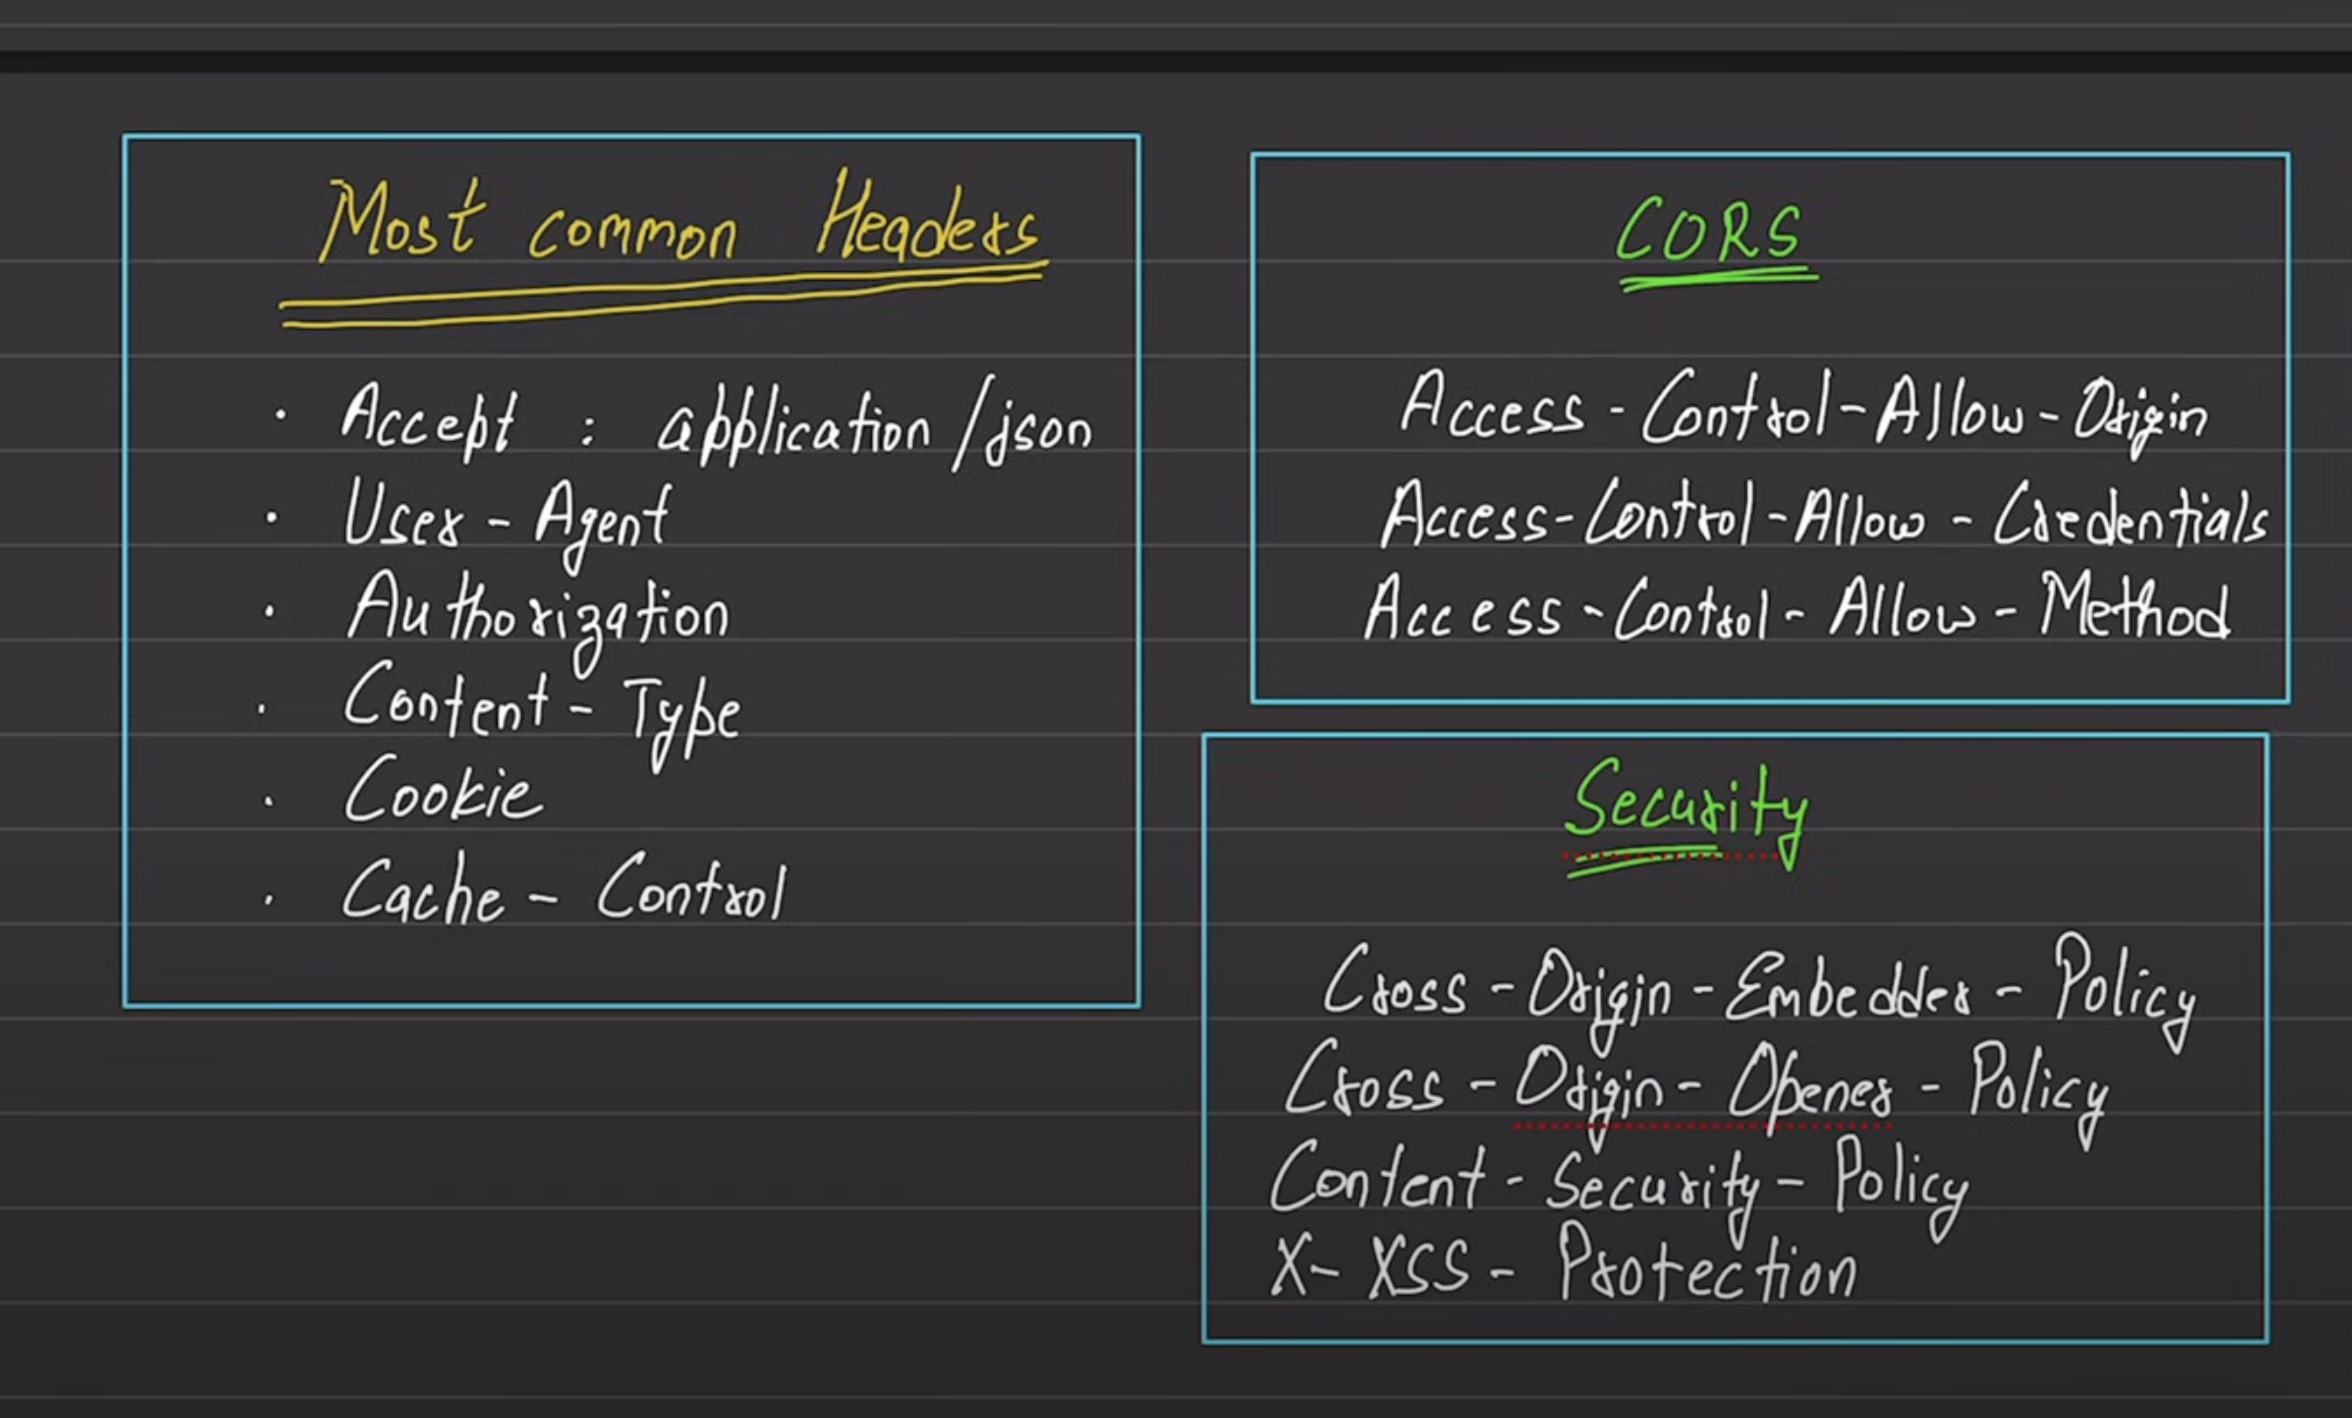 Most common Headers
• Accept : application/json
• User - Agent
• Authorization
• Content - Type
• Cookie
• Cache - Control
CORS
Access - Control - Allow - Origin
Access - Control - Allow - Credentials
Access - Control - Allow - Method
Security
Cross - Origin - Embedder - Policy
Cross - Origin - Opener - Policy
Content - Security - Policy
X - XSS - Protection